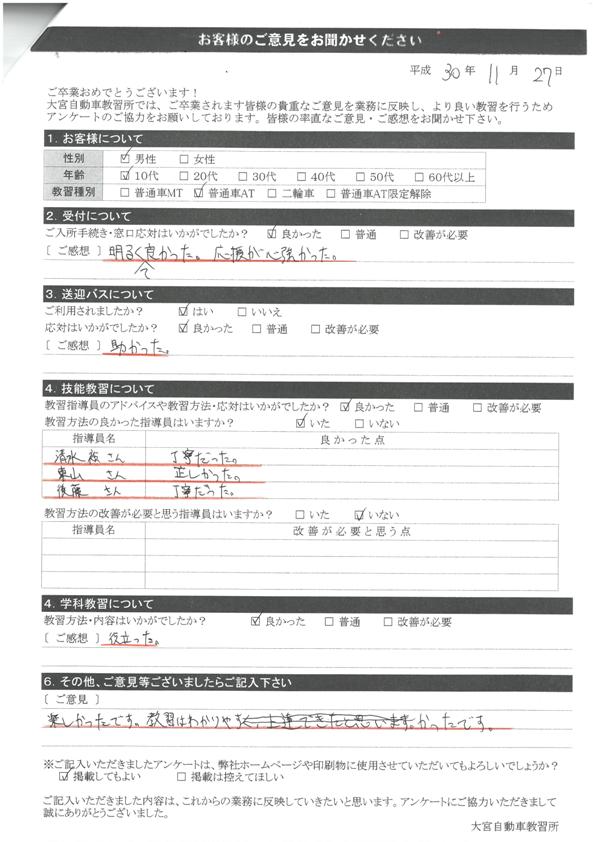 お客様のご意見をお聞かせください
平成 30 年 11 月 27 日
ご卒業おめでとうございます！
大宮自動車教習所では、ご卒業されます皆様の貴重なご意見を業務に反映し、より良い教習を行うため
アンケートのご協力をお願いしております。皆様の率直なご意見・ご感想をお聞かせ下さい。
1. お客様について
性別 ☑ 男性 □ 女性
年齢 ☑ 10代 □ 20代 □ 30代 □ 40代 □ 50代 □ 60代以上
教習種別 □ 普通車MT ☑ 普通車AT □ 二輪車 □ 普通車AT限定解除
2. 受付について
ご入所手続き・窓口応対はいかがでしたか？ ☑ 良かった □ 普通 □ 改善が必要
［ ご感想 ］ 明るくて良かった。応援が心強かった。
3. 送迎バスについて
ご利用されましたか？ ☑ はい □ いいえ
応対はいかがでしたか？ ☑ 良かった □ 普通 □ 改善が必要
［ ご感想 ］ 助かった。
4. 技能教習について
教習指導員のアドバイスや教習方法・応対はいかがでしたか？ ☑ 良かった □ 普通 □ 改善が必要
教習方法の良かった指導員はいますか？ ☑ いた □ いない
指導員名 良かった点
清水 裕 さん 丁寧だった。
東山 さん 正しかった。
後藤 さん 丁寧だった。
教習方法の改善が必要と思う指導員はいますか？ □ いた ☑ いない
指導員名 改善が必要と思う点
4. 学科教習について
教習方法・内容はいかがでしたか？ ☑ 良かった □ 普通 □ 改善が必要
［ ご感想 ］ 役立った。
6. その他、ご意見等ございましたらご記入下さい
［ ご意見 ］
楽しかったです。教習はわかりやすく、上達できたと思います。かったです。
※ご記入いただきましたアンケートは、弊社ホームページや印刷物に使用させていただいてもよろしいでしょうか？
☑ 掲載してもよい □ 掲載は控えてほしい
ご記入いただきました内容は、これからの業務に反映していきたいと思います。アンケートにご協力いただきまして
誠にありがとうございました。
大宮自動車教習所